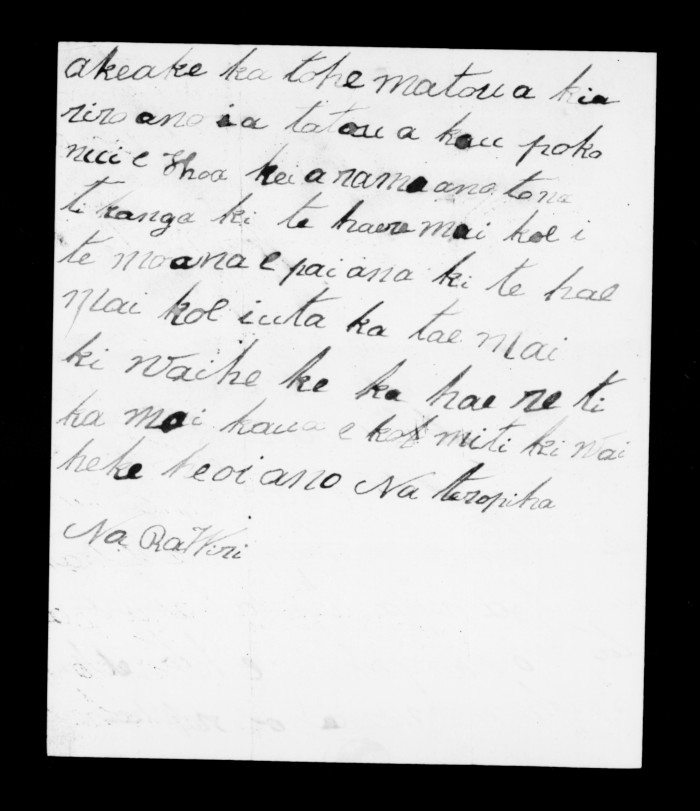 akeake ka tohe matou a kia
riro ano i a tatou a kau poko
nui e Hoa kei arama ano tona
ti kanga ki te haere mai koe i
te moana e pai ana ki te hae
mai koe i uta ka tae mai
ki Waihe ke ka hae re ti
ka mai kaua e koe miti ki Wai
heke heoi ano Na teropiha
Na RaWiri